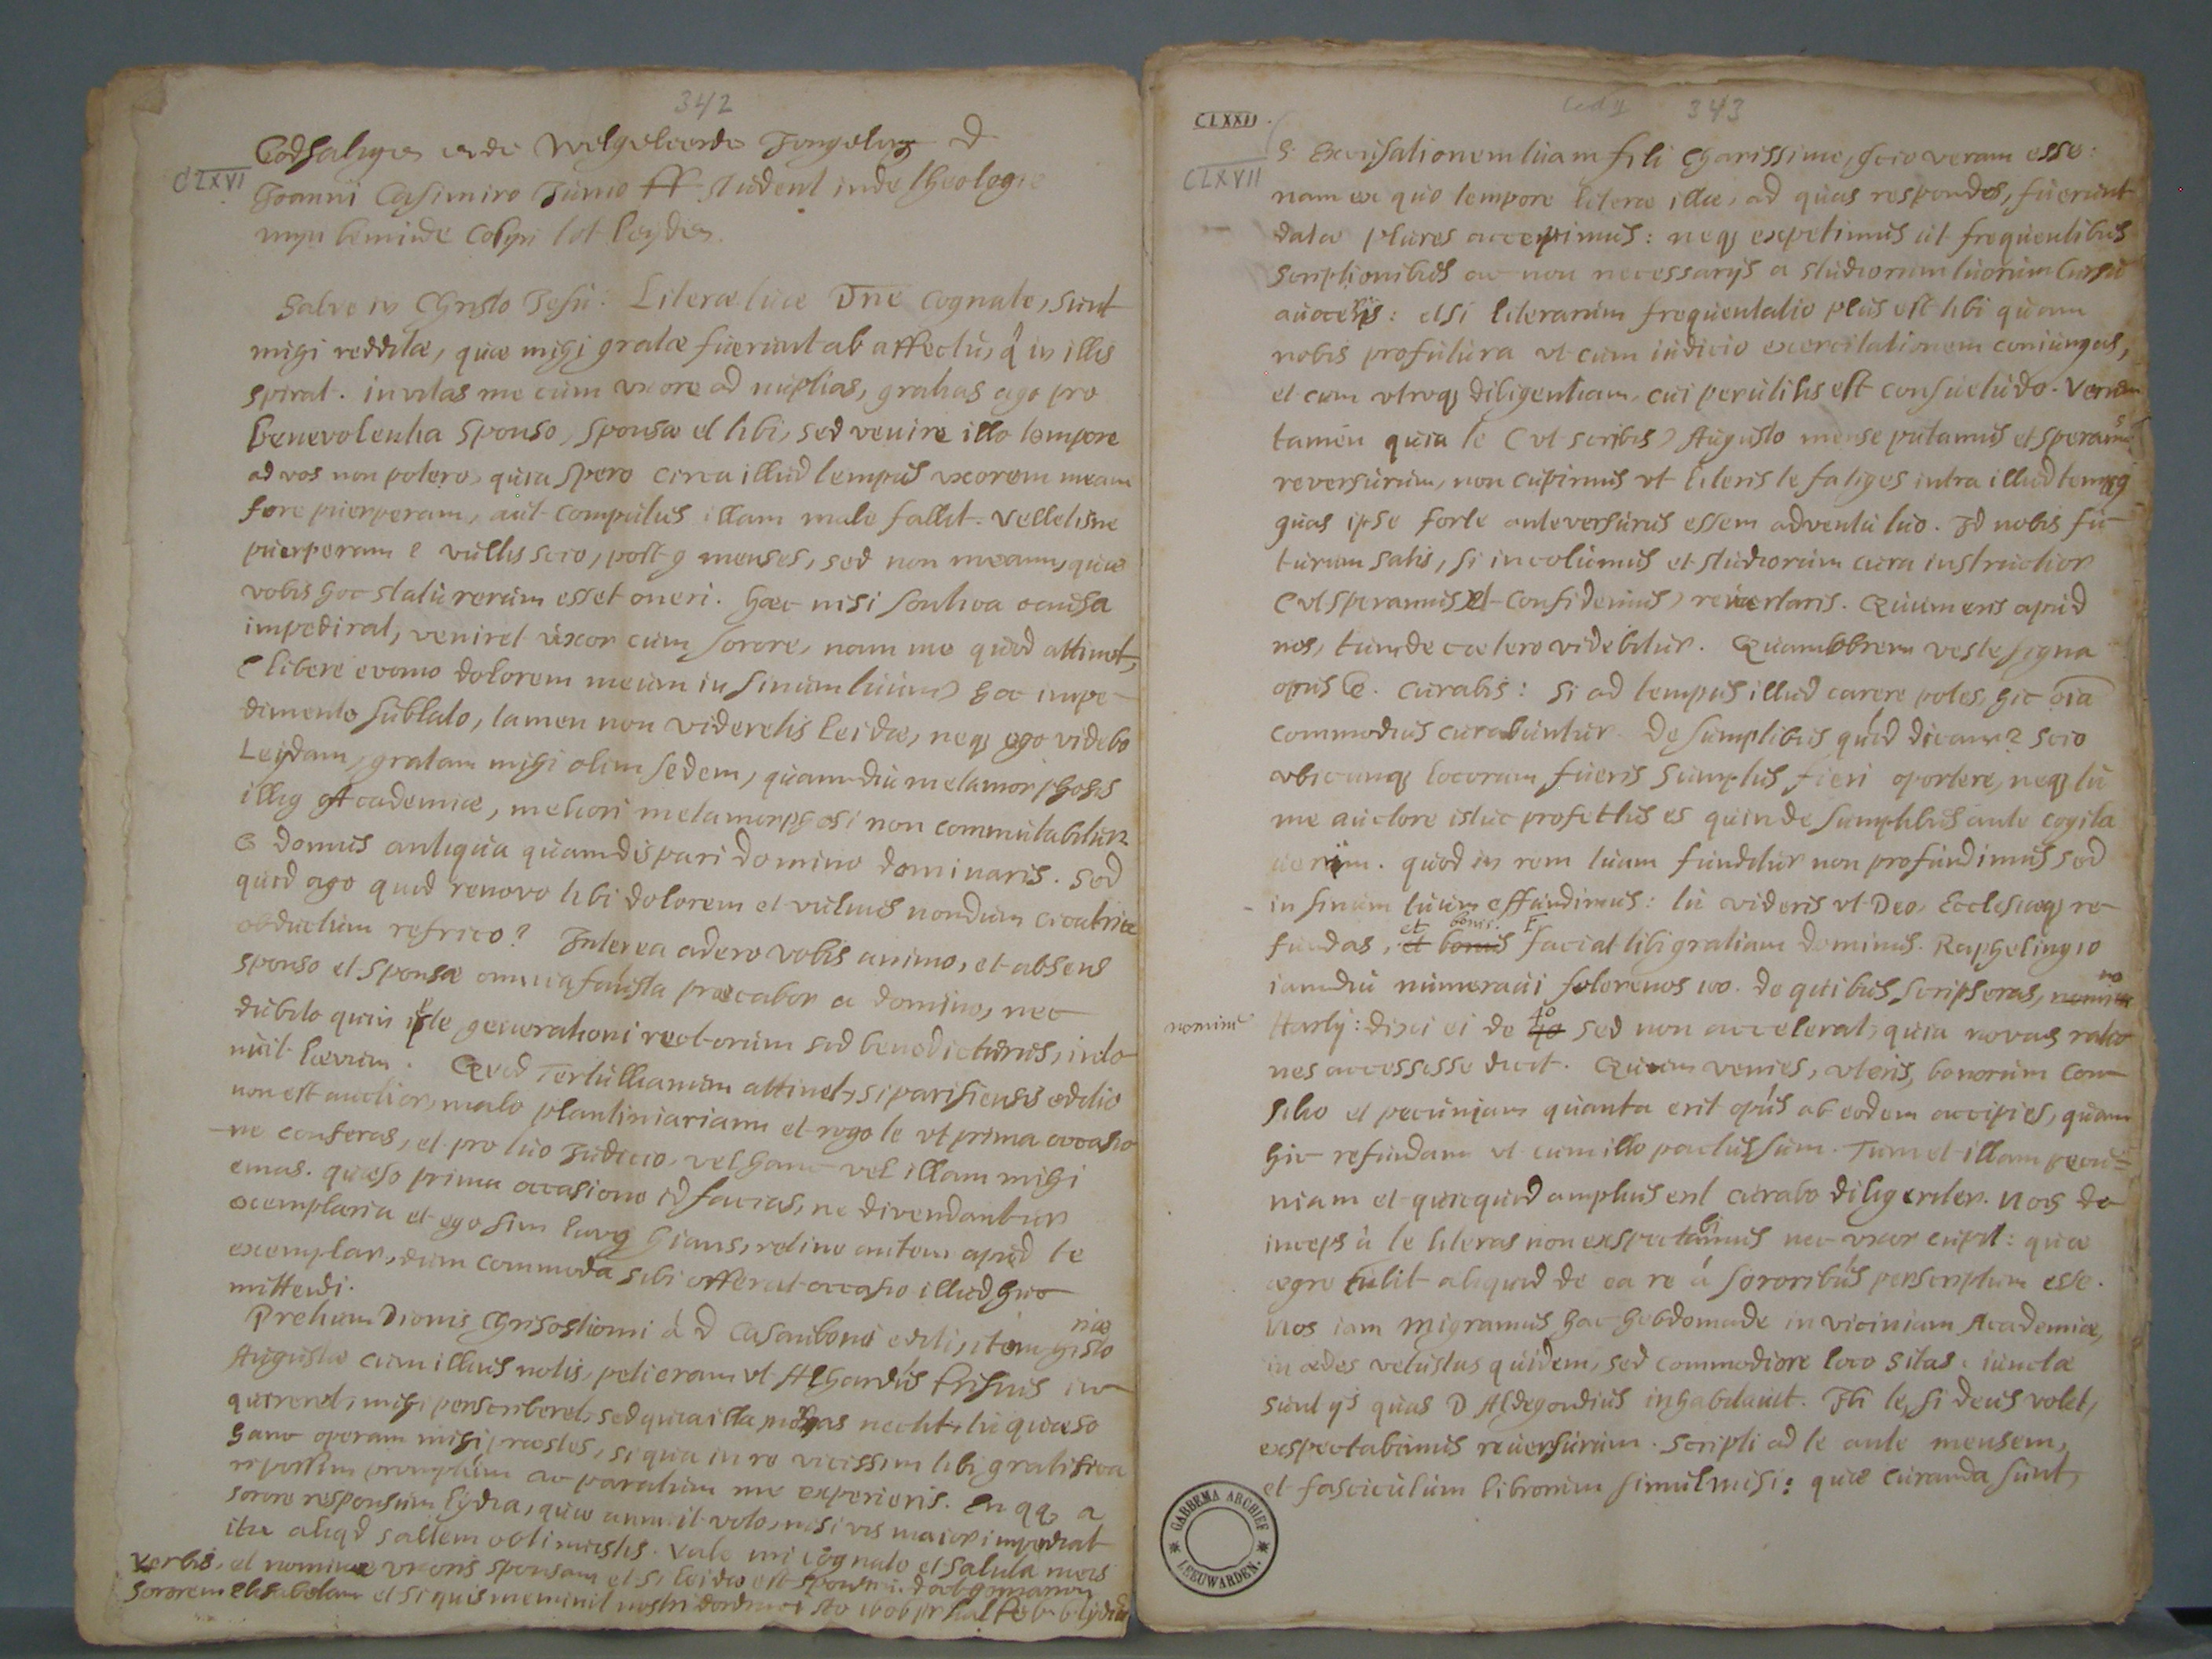 342
CLXVI
Godsaligen ende Welgeleerde Jongeling D
Joanni Casimiro Junio ff student inde theologie
myn beminde Cosyn tot Leyden
Salve in Christo Jesu. Literæ tuæ Dne Cognate, sunt
mihi redditæ, quæ mihi gratæ fuerunt ab affectu, q in illis
spirat. invitas me cum uxore ad nuptias, gratias ago pro
benevolentia sponso, sponsæ et tibi, sed venire illo tempore
ad vos non potero, quia spero circa illud tempus uxorem meam
fore puerperam, aut computus illam male fallit. velletisne
puerperam? vultis scio, post 9 menses, sed non meam, quæ
vobis hoc statu rerum esset oneri. hæc nisi sontica causa
impedirat, veniret uxor cum sorore, nam me quod attinet,
(libere evomo dolorem meum in sinum tuum) hoc impe-
dimento sublato, tamen non videretis Leidæ, neq ego videbo
Leydam, gratam mihi olim sedem, quamdiu metamorphosis
illig Academiæ, meliori metamorphosi non commutabitur
o domus antiqua quam dispari domino dominaris. sed
quid ago quid renovo tibi dolorem et vulnus nondum cicatrice
obductum refrico? Interea adero vobis animo, et absens
sponso et sponsæ omnia fausta præcabor a domino, nec
dubito quin iste, generationi rectorum sid benedicturus, into-
nuit lævum. Quod Tertullianum attinet, si parisiensis editio
non est auctior, malo plantiniariam et rogo te ut prima occasio
ne conferas, et pro tuo Judicio, vel hanc vel illam mihi
emas. quæso prima occasione id facias, ne divendantur
exemplaria et ego sim larvg hians, retine autem apud te
exemplar, dum commoda sibi offerat occasio illud huc
mittendi.
Pretium Dionis Chrisostomi á D Casaubono editi, item histo
riæ
Augustæ cum illius notis, petieram ut Alhardus frisius in-
quireret, mihi perscriberet, sed quia illa moras nectit, tu quæso
hanc operam mihi præstes, si qua in re vicissim tibi gratifica
ri possim promptum ac paratum me experieris. En qq a
sorore responsum Lydia, quæ annuit voto, nisi vis maior impediat
ita aliqd saltem obtinuistis. Vale mi cognate et saluta meis
verbis, et nomine uxoris sponsam et si Leidæ est sponsum. D
sororem Elisabetam et si quis meminit nostri
CLXXII.
343
CLXVII
S. Excusationem tuam fili Charissime, scio veram esse:
nam ex quo tempore literæ illæ, ad quas respondes, fuerunt
datæ plures accepimus: neq expetimus ut frequentibus
scriptionibus ac non necessarijs a studiorum tuorum cursu
avoceris: etsi literarum frequentatio plus est tibi quam
nobis profutura ut cum iudicio exercitationem coniungas,
et cum utroq diligentiam, cui perutilis est consuetudo. Verum
tamen quia te (ut scribis) Augusto mense putamus et speramus
reversurum, non cupimus ut literis te fatiges intra illud tempg
quas ipse forte anteversurus essem adventu tuo. Id nobis fu-
turum satis, si incolumis et studiorum cura instructior
(ut speramus et confidimus) revertaris. Quum eris apud
nos, tum de cætero videbitur. Quamobrem veste signa
opus e. curabis: si ad tempus illud carere potes, hic oia
commodius curabuntur. De sumptibus quid dicam? scio
ubicunq locorum fueris sumptus fieri oportere, neq tu
me auctore istuc profectus es quin de sumptibus ante cogita
uerim. quod in rem tuam funditur non profundimus sed
in sinum tuum effundimus: tu videris ut Deo, Ecclesiæq re-
fundas, et bonis
et bonis. Faciat tibi gratiam dominus. Raphelingio
iamdiu numeraui florenos 100. de quibus scripseras, nomine
nomine
Harty: dixi ei de 40 sed non accelerat, quia novas ratio
nes accessisse dicit. Quum venies, uteris, bonorum con-
silio et pecuniam quanta erit opus ab eodem accipies, quam
hic refundam ut cum illo pactus sum. Tum et illam pecu-
niam et quicquid amplius erit curabo diligenter. Nos de
inceps à te literas non exspectabimus nec uxor cupit: quæ
ægre tulit aliquid de ea re á sororibus perscriptum esse.
Nos iam migramus hac hebdomade in viciniam Academiæ,
in ædes vetustas quidem, sed commodiore loco sitas: iunctæ
sunt ijs quas D Aldegondius inhabitauit. Ibi te, si deus volet,
exspectabimus reuersurum. Scripti ad te ante mensem,
et fasciculum librorum simul misi: quæ curanda sunt,
GABBEMA ARCHIEF
LEEUWARDEN.